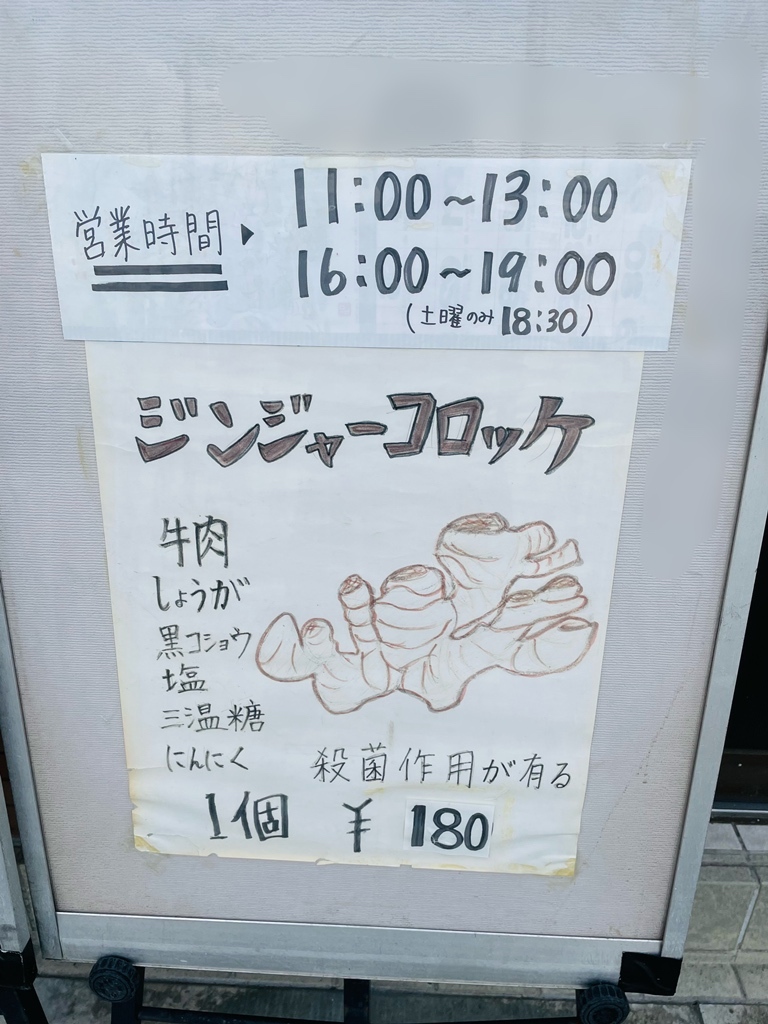 営業時間▶ 11:00~13:00
16:00~19:00
(土曜のみ18:30)
ジンジャーコロッケ
牛肉
しょうが
黒コショウ
塩
三温糖
にんにく
殺菌作用が有る
1個 ¥180